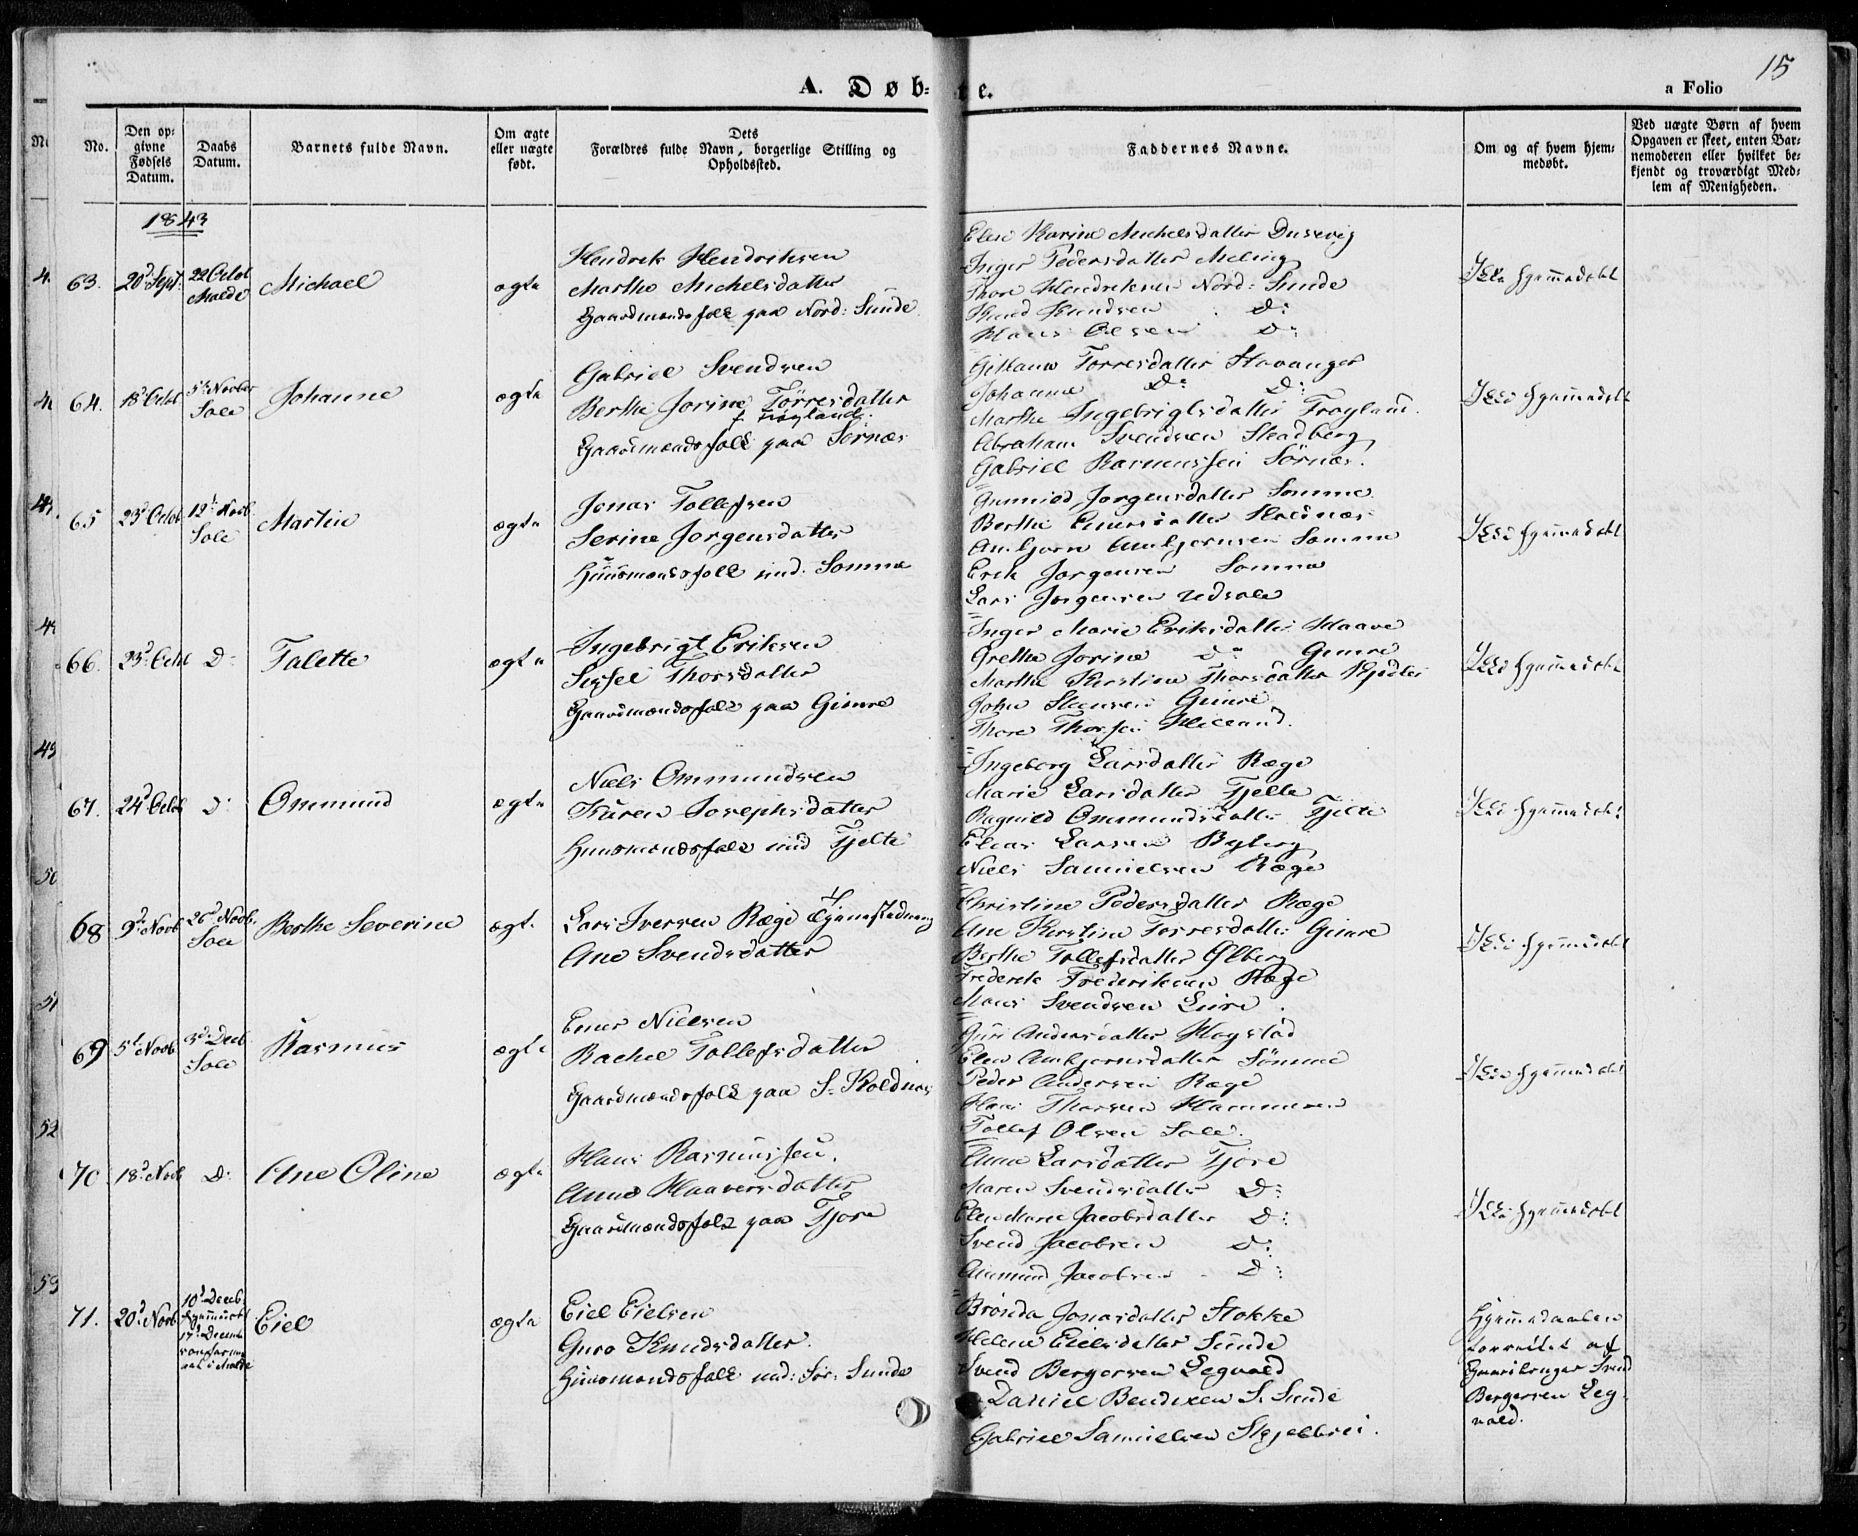 15
A. Døb=te.
a Folio
No.
Den op=
givne
Fødsels
Datum.
Daabs
Datum.
Barnets fulde Navn.
Om ægte
eller uægte
født.
Dets
Forældres fulde Navn, borgerlige Stilling og
Opholdssted.
Faddernes Navne.
Om og af hvem hjem=
medøbt.
Ved uægte Børn af hvem
Opgaven er skeet, enten Bar=
nemoderen eller hvilket be=
kjendt og troværdigt Med=
lem af Menigheden.
1843
63.
20d Sept.
22 Octob
Malde
Michael
ægte
Hendrik Hendriksen
Marthe Michelsdatter
Gaardmandsfolk paa Nord: Sunde
Elen Karine Michelsdatter Dusevig
Inger Pedersdatter Meling
Thore Hendriksen Nord: Sunde
Knud Knudsen D:
Hans Olsen D:
Ikke hjemmedøbt
64.
18d Octob
5te Novber
Sole
Johanne
ægte
Gabriel Svendsen
Berthe Jorine Tørresdatter
f Frøyland.
Gaardmandsfolk paa Sørnæs
Torresdatter Stavanger
Johanne D: D:
Marthe Ingebrigtsdatter Frøyland.
Abraham Svendsen Stadberg
Gabriel Rasmussen Sørnæs.
Ikke hjemmedøbt
65
23d Octob
12te Novb
Sole
Martin
ægte
Jonas Tollefsen
Serine Jorgensdatter
Huusmandsfolk und. Somme
Gunnild Jorgensdatter Somme
Berthe Einersdatter Koldnæs
Ambjorn Ambjornsen Somme
Erik Jorgensen Somme
Lars Jorgensen Udsole
Ikke hjemmedøbt
66.
23d Octob
D:
Talette
ægte
Ingebrigt Eriksen
Sissel Thorsdatter
Gaardmandsfolk paa Gimre
Inger Marie Eriksdatter Haave
Grethe Jorine D: Gimre
Marthe Kirstine Thorsdatter
John Gimre
Thore Thorsen
Ikke hjemmedøbt
67.
24d Octob
D:
Ommund
ægte
Niels Ommundsen
Karen Josephsdatter
Huusmandsfolk und Tjelte
Ingeborg Larsdatter Ræge
Marie Larsdatter Tjelte
Ragnild Ommundsdatter Tjelte
Elias Larsen Byberg
Niels Samuelsen Ræge
Ikke hjemmedøbt
68
9de Novb
26d Novb.
Sole
Berthe Severine
ægte
Lars Iversen Ræge
Ane Svendsdatter
Christine Pedersdatter Ræge
Ane Kirstine Torresdatter Gimre
Berthe Tollefsdatter Ølberg
Frederik Frederiksen Ræge
Mons Svendsen Lure
Ikke hjemmedøbt
69
5te Novb.
3d Decb
Sole
Rasmus
ægte
Einer Nielsen
Rachel Tollefsdatter
Gaardmandsfolk paa S: Koldnæs
Guri Andersdatter Hogstad
Elen Ambjornsdatter Sömme
Peder Andersen Ræge
Hans Thorsen Hammeren
Tollef Olsen Sole.
Ikke hjemmedøbt
70
18d Novb
D:
Ane Oline
ægte
Hans Rasmussen.
Anne Haaversdatter
Gaardmandsfolk paa Tjore
Anna Larsdatter Tjore
Maren Svendsdatter D:
Elen Marie Jacobsdatter D:
Svend Jacobsen D:
Aamund Jacobsen D:
Ikke hjemmedøbt
71.
20d Novb
10d Decb.
hjemmedøbt
17d Decemb
confirme
ret i Malde
Eiel
ægte
Eiel Eielsen
Guro Knudsdatter.
Huusmandsfolk und: Sør: Sunde
Brønda Jonasdatter Stokke
Helene Eielsdatter Sunde
Svend Bergersen Legvold
Daniel Bendixen S. Sunde
Gabriel Samuelsen Skjelbrei.
Hjemmedaaben
forrettet af
Gaardbruger Svend
Bergersen Leg
vold.